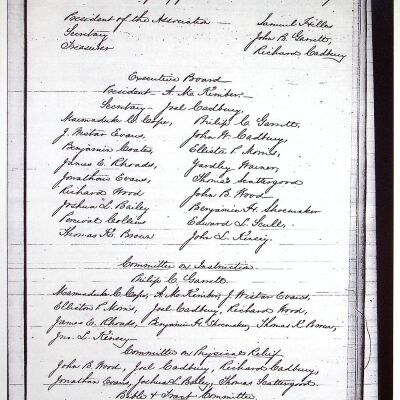 President of the Association Samuel Hilles
Secretary John B. Garrett,
Treasurer Richard Cadbury
Executive Board
President A. M. Kimber,
Secretary - Joel Cadbury,
Marmaduke C. Cope, Philip C. Garrett,
J. Wistar Evans, John W. Cadbury,
Benjamin Coates, Elliston P. Morris,
James E. Rhoads, Yardley Warner,
Jonathan Evans, Thomas Scattergood
Richard Wood John B. Wood
Joshua L. Bailey Benjamin H. Shoemaker
Percival Collins Edward L. Scull,
Thomas K. Brown John L. Kinsey.
Committee on Instruction
Philip C. Garrett
Marmaduke C. Cope, A. M. Kimber, J Wistar Evans,
Elliston P. Morris, Joel Cadbury, Richard Wood,
James E. Rhoads, Benjamin H. Shoemaker, Thomas K Brown,
Jno. L. Kinsey.
Committee on Physical Relief
John B. Wood, Joel Cadbury, Richard Cadbury,
Jonathan Evans, Joshua L. Bailey, Thomas Scattergood.
Bible & Tract Committee